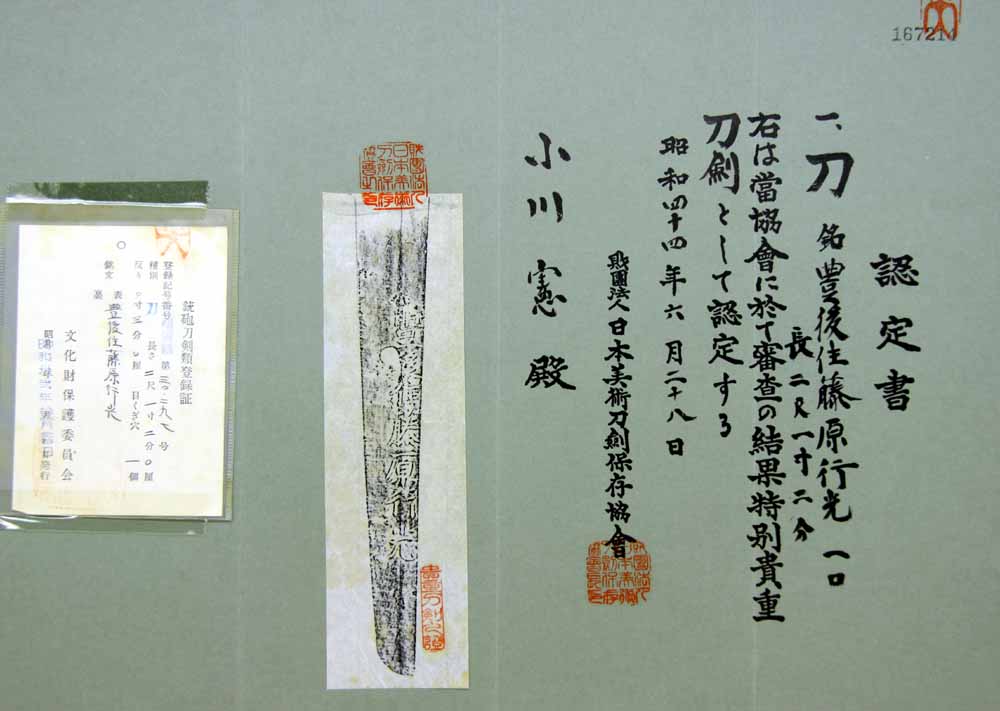 167214
認定書
一、刀 銘 豊後住藤原行光 一口
長二尺一寸二分
右は當協會に於て審査の結果特別貴重
刀剣として認定する
昭和四十四年六月二十八日
財團法人日本美術刀劍保存協會
小川憲殿
豊後住藤原行光
銃砲刀剣類登録証
登録記号番号 第 号
種別 刀 長さ 二尺一寸二分0厘
反り 寸 分0厘 目くぎ穴 一個
銘文 表 豊後住藤原行光
裏
文化財保護委員会